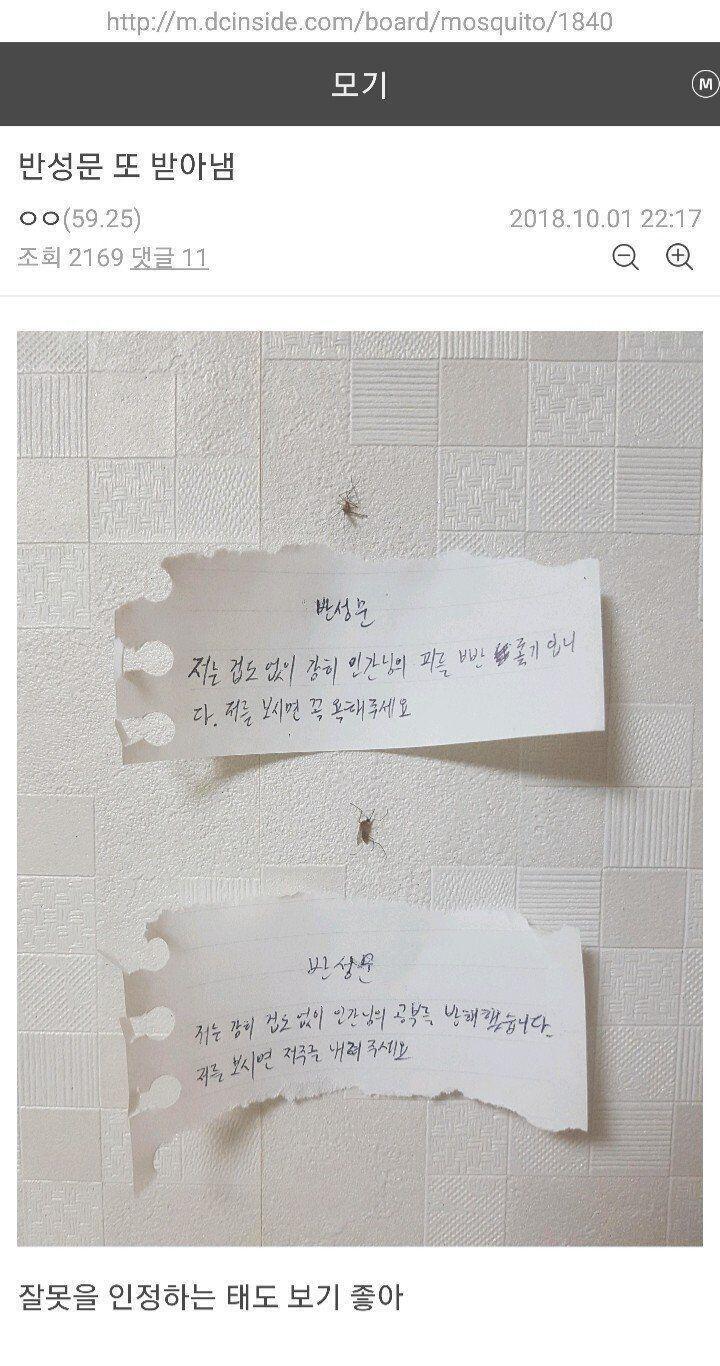 http://m.dcinside.com/board/mosquito/1840
모기
M
반성문 또 받아냄
ㅇㅇ(59.25)
2018.10.01 22:17
조회 2169 댓글 11
반성문
저는 겁도 없이 감히 인간님의 피를 빤 입니
다. 저를 보시면 꼭 욕해주세요
반성문
저는 감히 겁도 없이 인간님의 공부를 방해했습니다.
저를 보시면 저주를 내려 주세요
잘못을 인정하는 태도 보기 좋아